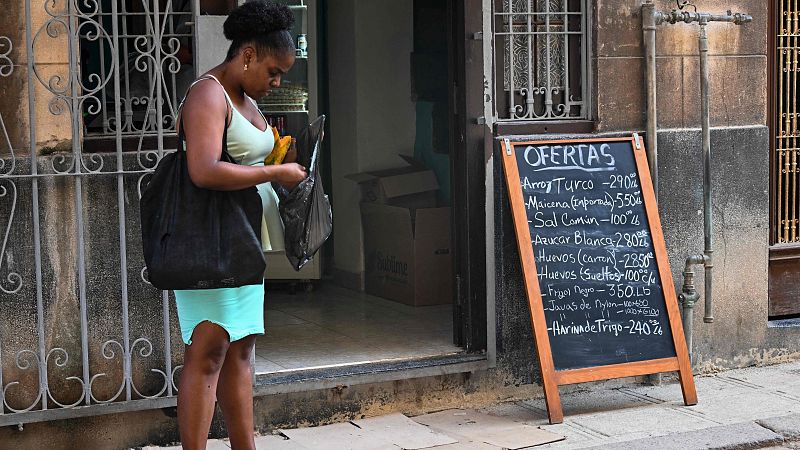 OFERTAS
-Arroz Turco -290 Lb
-Maicena (Importada) -550 Lb
-Sal Común -100 Lb
-Azucar Blanca -280 Lb
-Huevos (carton) -2850
-Huevos (Sueltos) -100 c/u
-Frijol Negro -350 Lb
-Javas de Nylon
-Harina de Trigo -240 Lb
Sublime